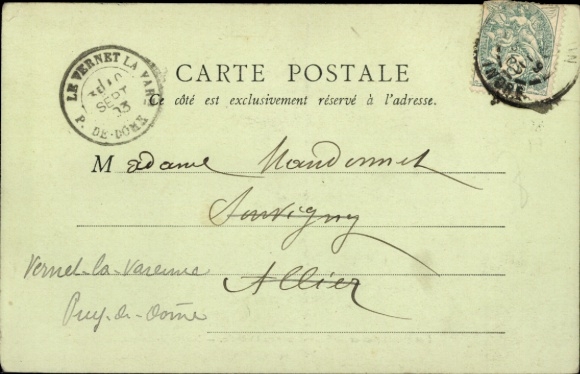 LE VERNET LA VARENNE
SEPT
03
P. DE-DOME
CARTE POSTALE
Ce côté est exclusivement réservé à l'adresse.
Madame Mandonnet
Souvigny
Allier
Vernet-la-Varenne
Puy-de-Dôme
INDRE